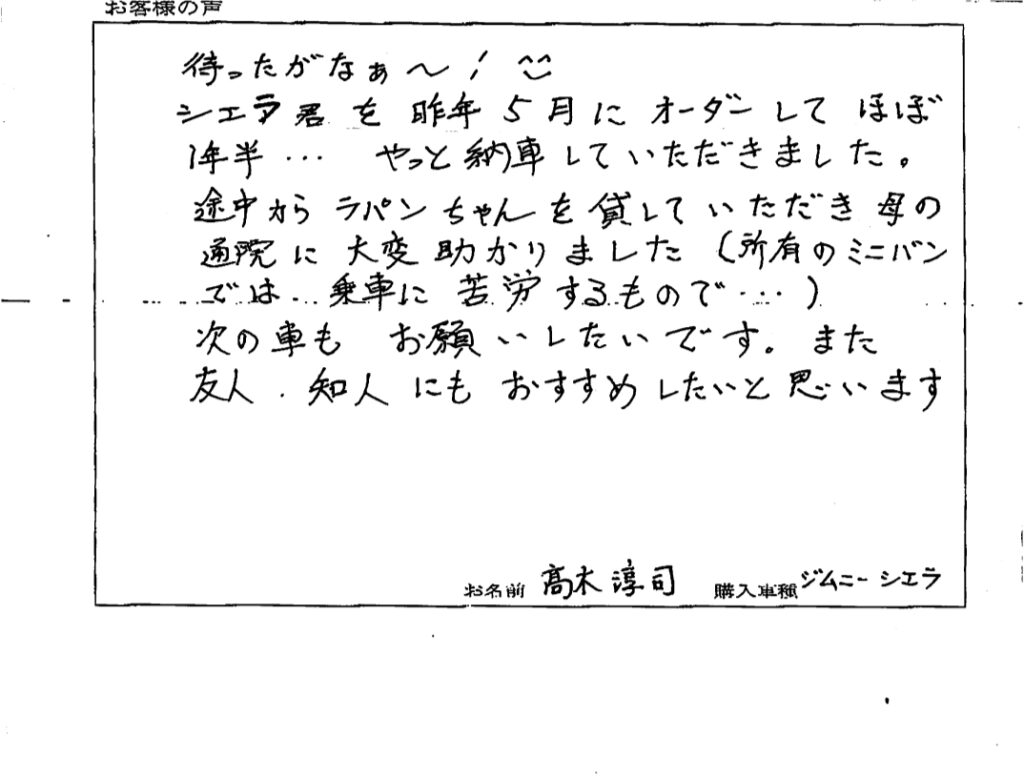 お客様の声
待ったがなぁ～！^^
シエラ君を昨年5月にオーダーしてほぼ
1年半… やっと納車していただきました。
途中からラパンちゃんを貸していただき母の
通院に大変助かりました(所有のミニバン
では乗車に苦労するもので…)
次の車もお願いしたいです。また
友人．知人にもおすすめしたいと思います
お名前 髙木淳司 購入車種 ジムニーシエラ